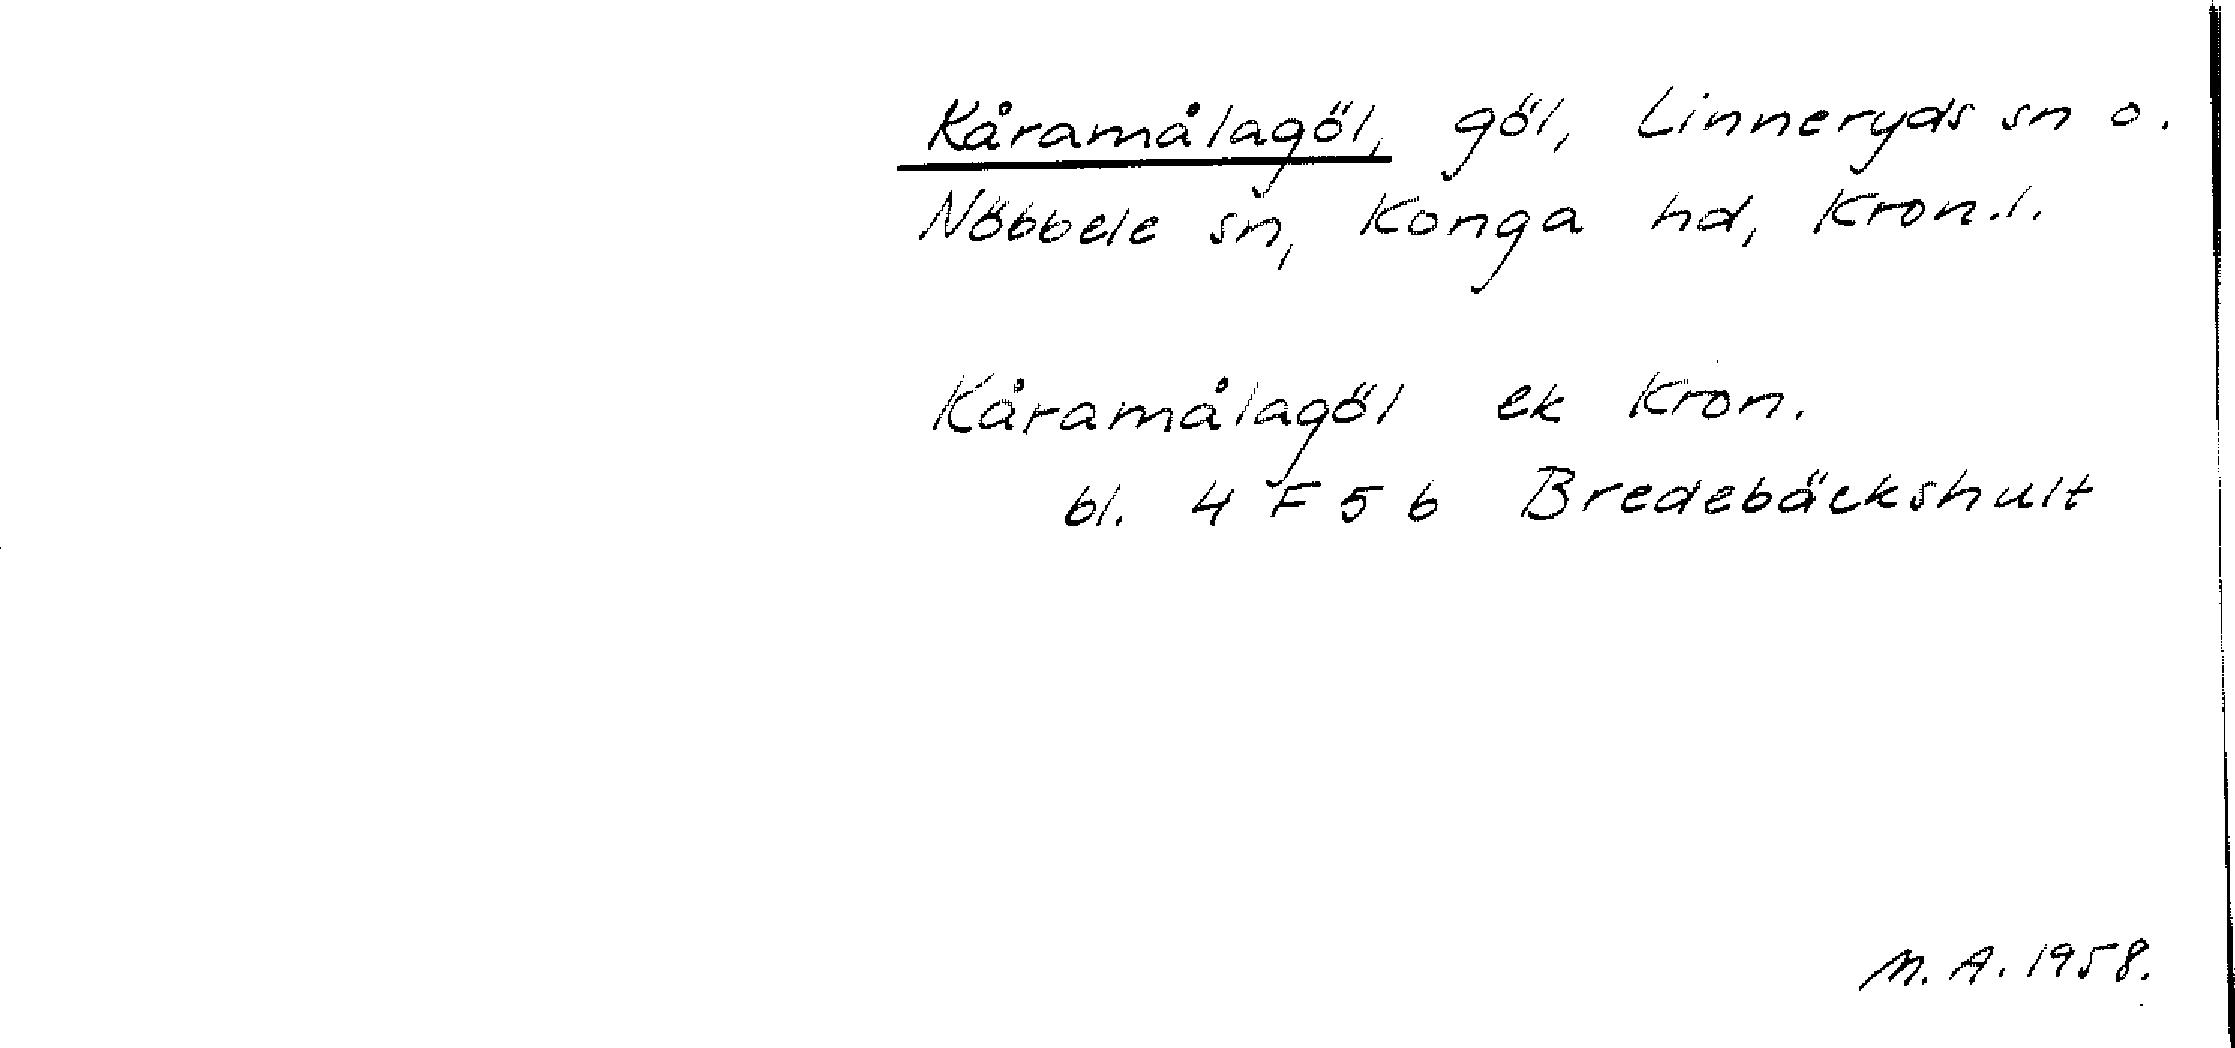 Kåramålagöl, göl, Linneryds sn o.
Nöbbele sn, Konga hd, Kron.l.
Kåramålagöl ek Kron.
bl. 4 F 5 b Bredebäckshult
M. A. 1958.